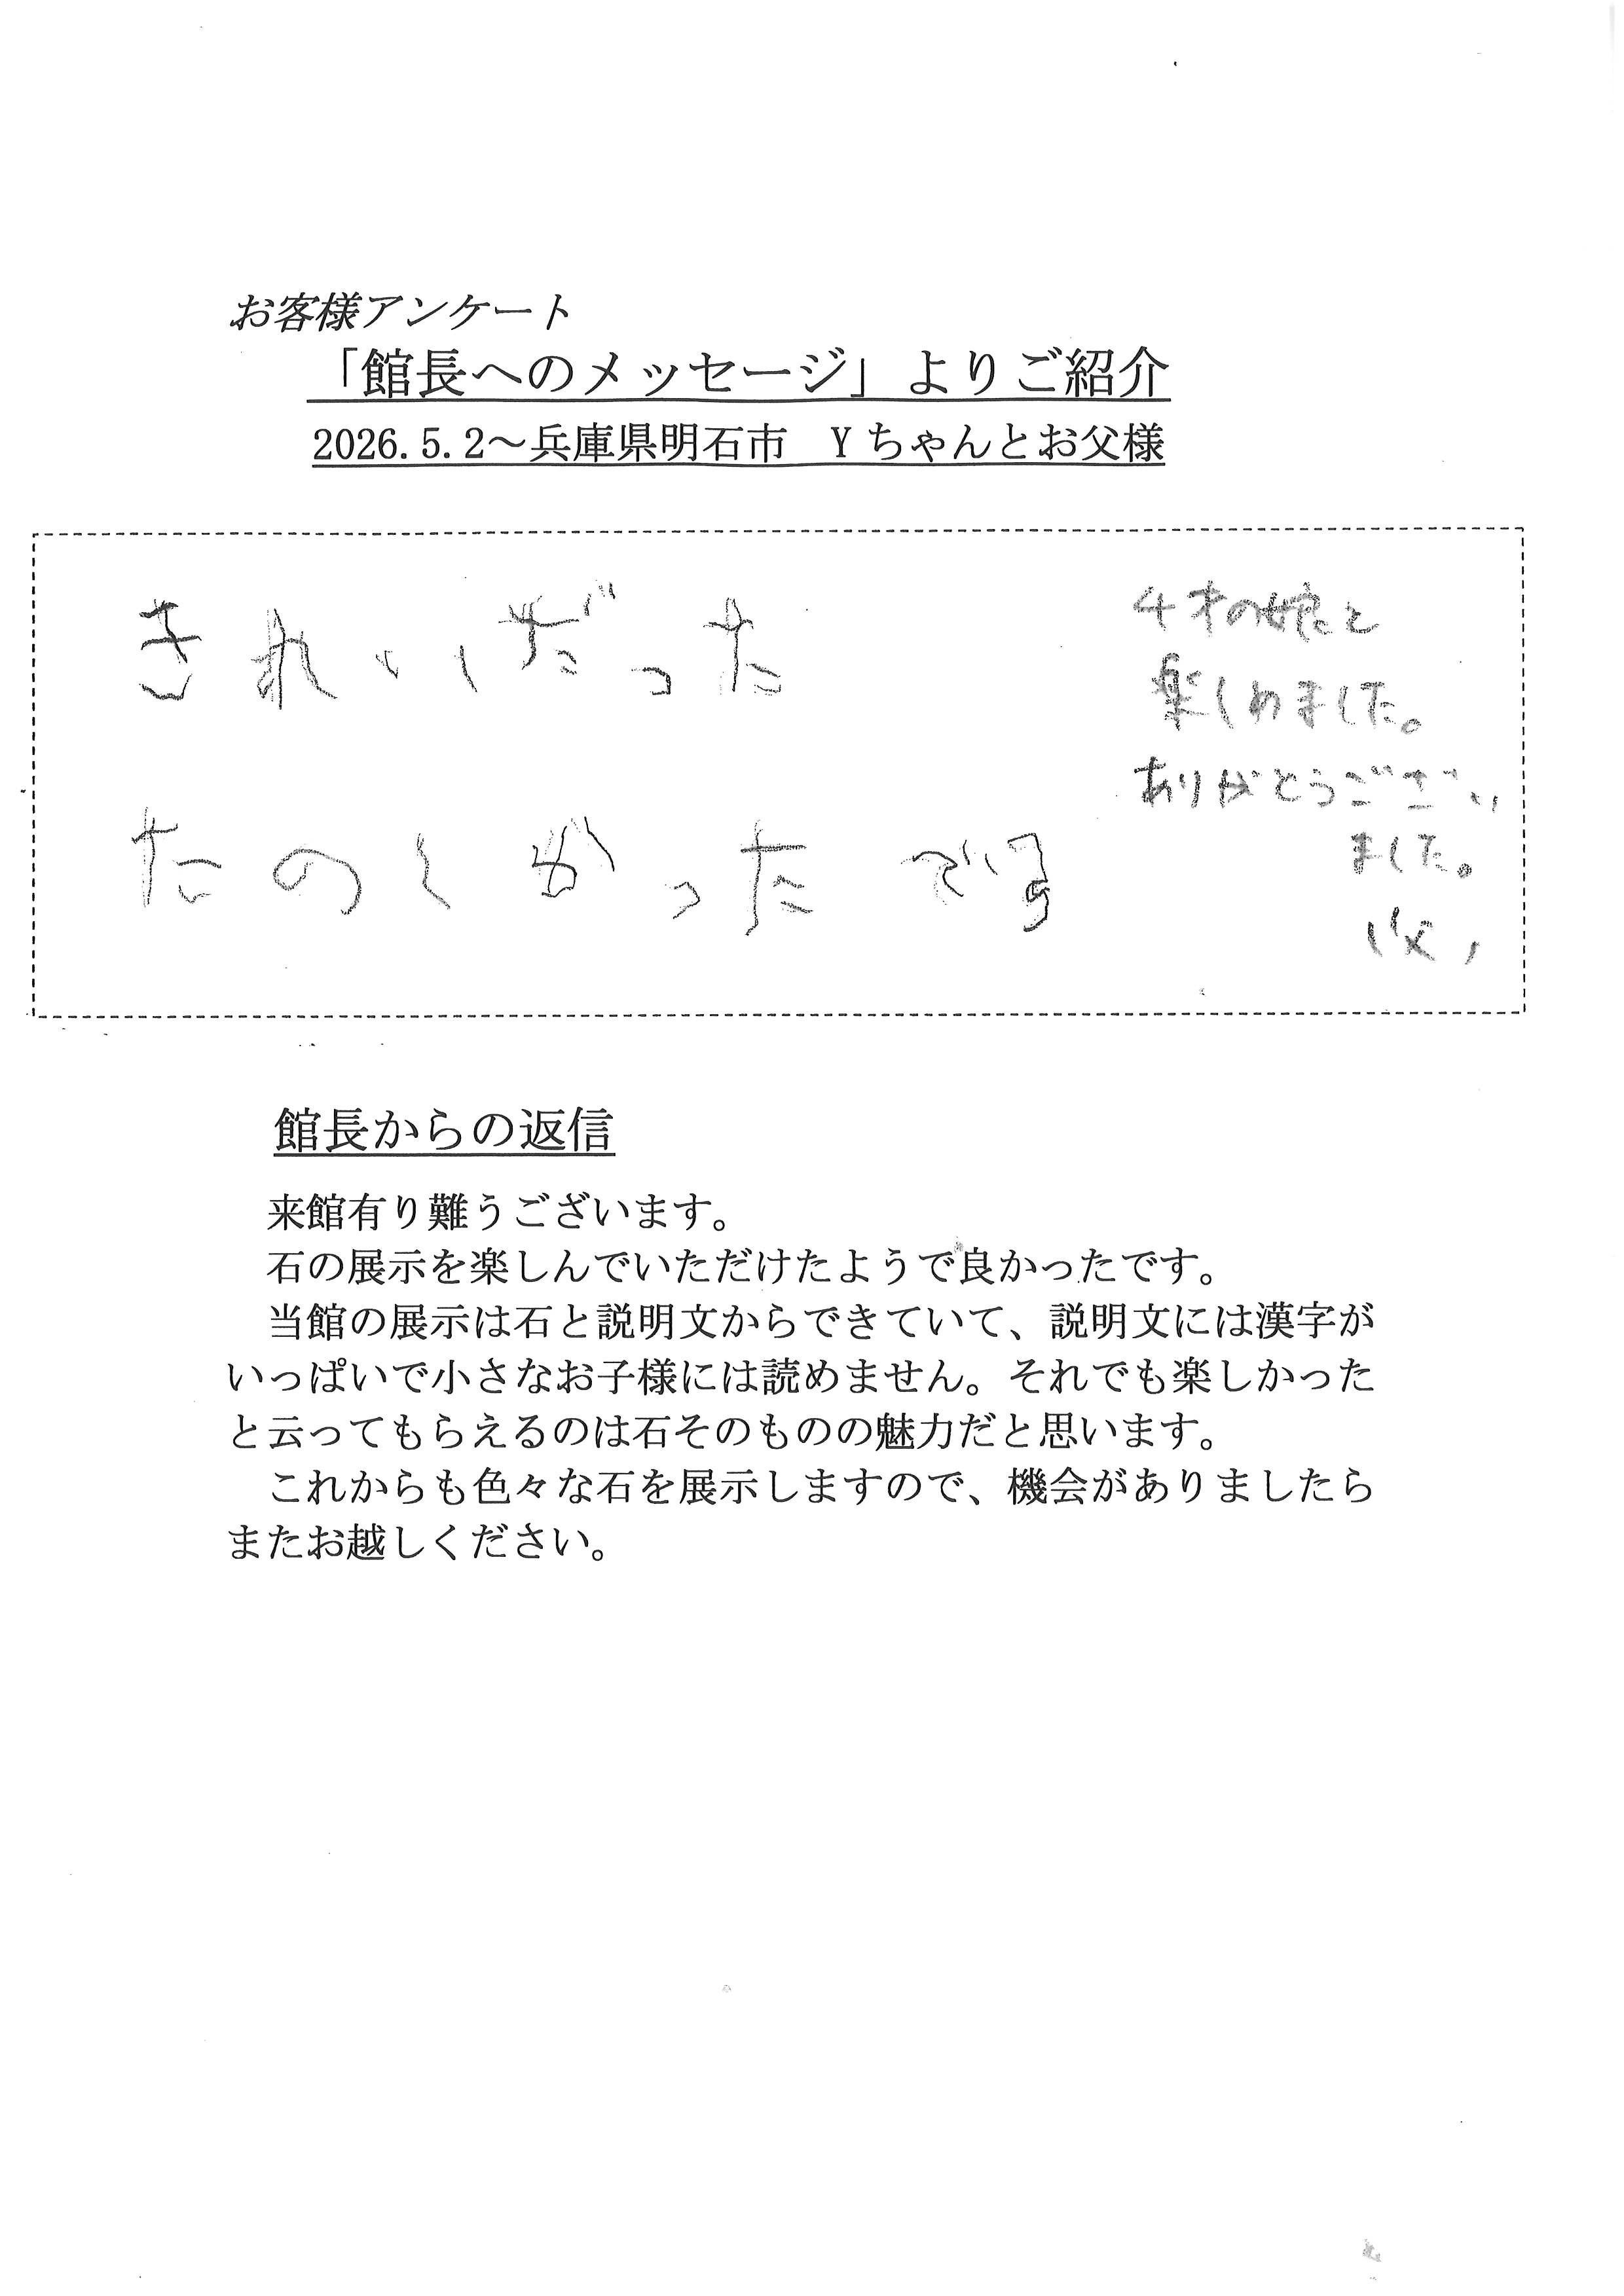 お客様アンケート
「館長へのメッセージ」よりご紹介
2026.5.2～兵庫県明石市　Yちゃんとお父様
きれいだった
たのしかったです
4才の娘と
楽しめました。
ありがとうござい
ました。
(父)
館長からの返信
来館有り難うございます。
石の展示を楽しんでいただけたようで良かったです。
当館の展示は石と説明文からできていて、説明文には漢字が
いっぱいで小さなお子様には読めません。それでも楽しかった
と云ってもらえるのは石そのものの魅力だと思います。
これからも色々な石を展示しますので、機会がありましたら
またお越しください。